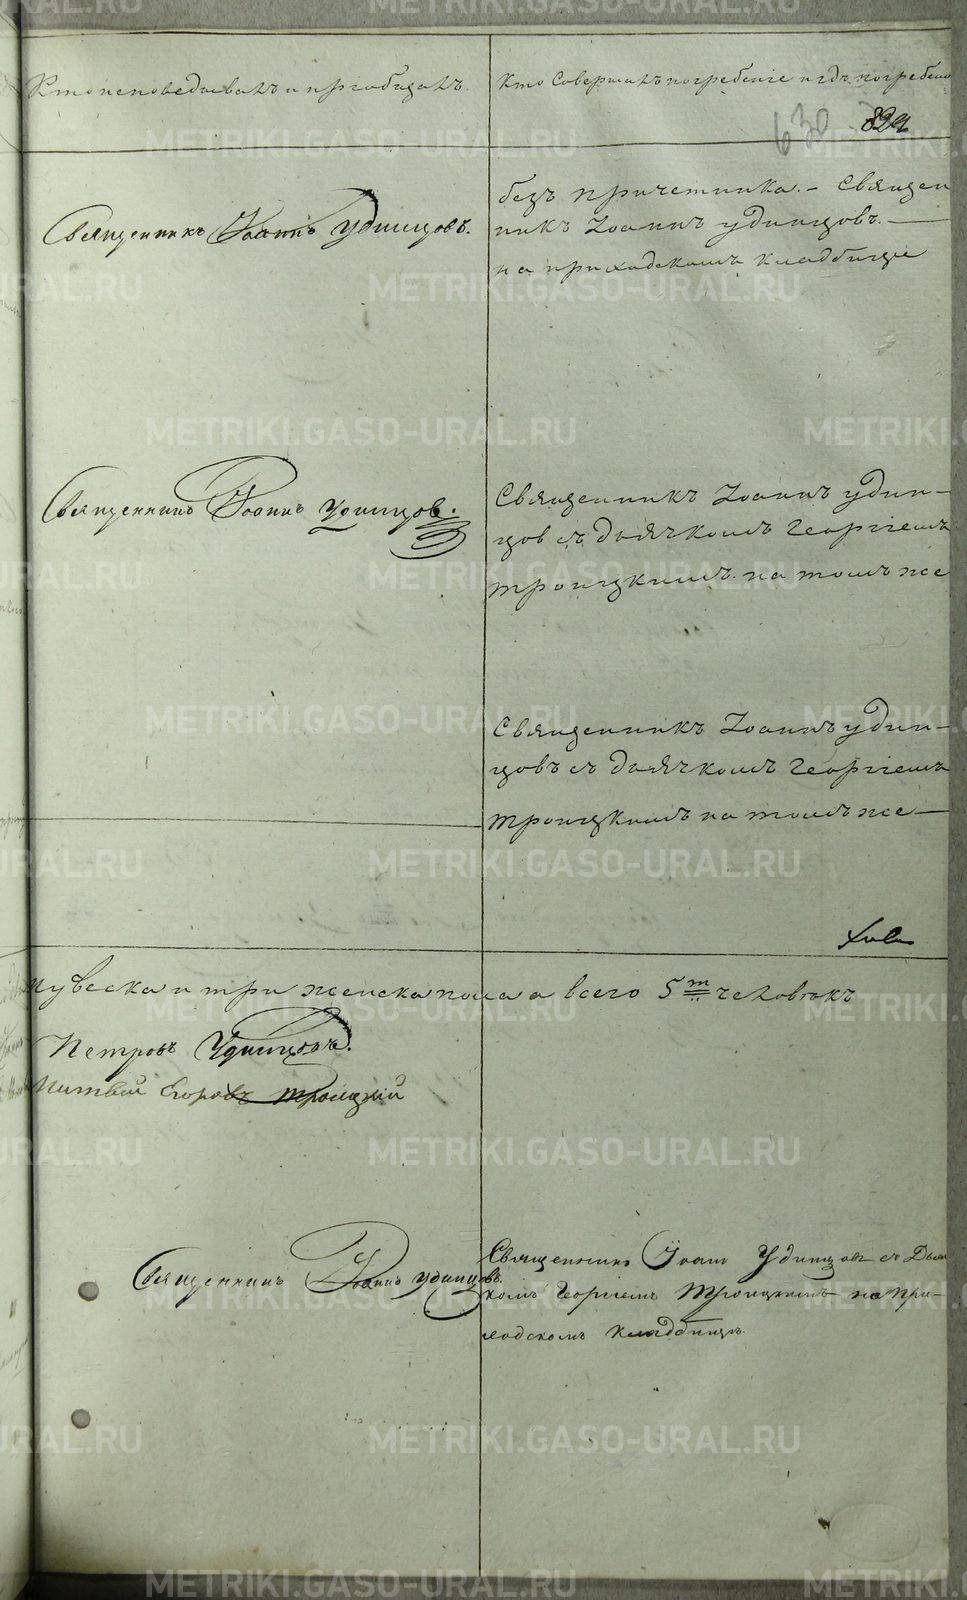 Кто исповедывалъ и приобщалъ.
Кто Совершалъ погребенiе и гдѣ погребено
630 824
Священникъ Iоаннъ Удинцовъ.
безъ причетника. - Священ
никъ Iоаннъ удинцовъ. —
на приходскомъ кладбище
Священникъ Iоаннъ Удинцов.
Священникъ Iоаннъ удин-
цов съ дьячкомъ Георгiемъ
троицкимъ на томъ же
Священникъ Iоаннъ удин-
цовъ съ дьячкомъ Георгiемъ
троицкимъ на томъ же —
мужеска и три женска пола а всего 5ть человѣкъ
Петровъ Удинцовъ.
Егоровъ Троицкiй
Священникъ Iоаннъ Удинцовъ.
Священникъ Iоаннъ Удинцовъ съ Дьяч
комъ Георгiемъ Троицкимъ на При-
ходскомъ кладбищѣ.
METRIKI.GASO-URAL.RU